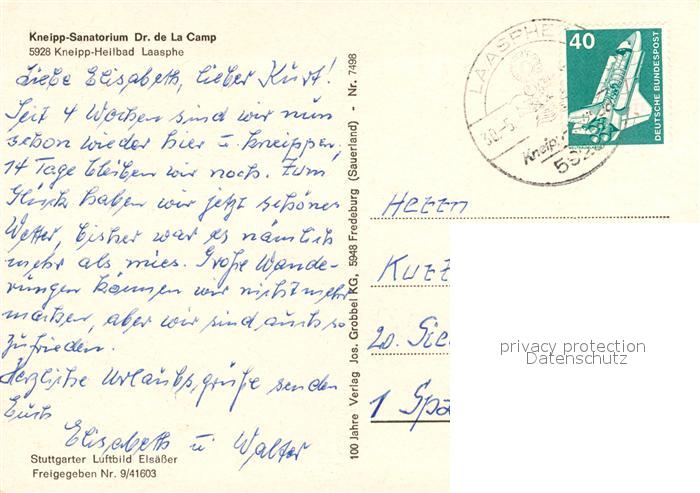 Kneipp-Sanatorium Dr. de La Camp
5928 Kneipp-Heilbad Laasphe
Liebe Elisabeth, lieber Kurt!
Seit 4 Wochen sind wir nun
schon wieder hier u. kneippen,
14 Tage bleiben wir noch. Zum
Glück haben wir jetzt schönes
Wetter, bisher war es nämlich
mehr als mies. Große Wande-
rungen können wir nicht mehr
machen, aber wir sind auch so
zufrieden.
Herzliche Urlaubsgrüße senden
Euch
Elisabeth u. Walter
Stuttgarter Luftbild Elsäßer
Freigegeben Nr. 9/41603
100 Jahre Verlag Jos. Grobbel KG, 5948 Fredeburg (Sauerland) - Nr. 7498
LAASPHE
30.-5.
Kneipp
592
40
DEUTSCHE BUNDESPOST
Herrn
Kurt
20. Sie
1 Spa
privacy protection
Datenschutz